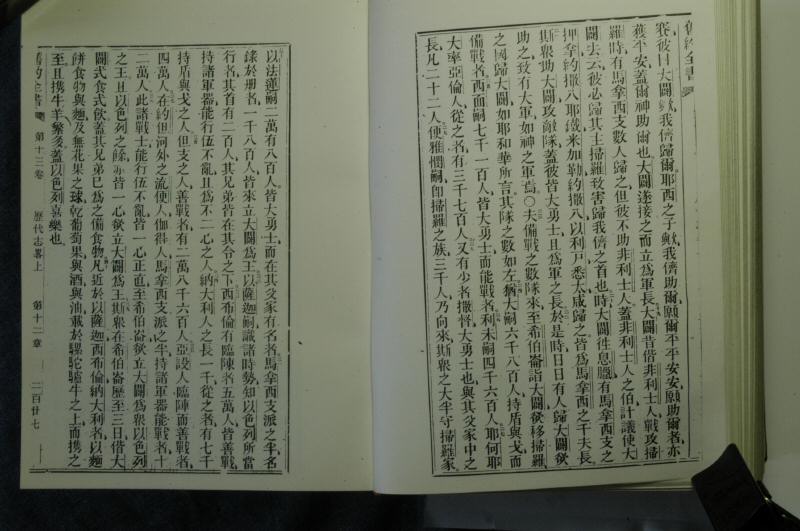 舊約全書
裔、彼曰、大闢歟、我儕歸爾、耶西之子歟、我儕助爾、願爾平平安安、願助爾者亦
獲平安、蓋爾神助爾也、大闢遂接之、而立為軍長、大闢昔偕非利士人戰攻掃
羅時、有馬拿西支數人歸之、但彼不助非利士人、蓋非利士人之伯計議、使大
闢去、云彼必歸其主掃羅、致害歸我儕之首也、時大闢往息臘、有馬拿西支之
押拿、約撒八、耶敵、米加勒、約撒八、以利戸、悉太、咸歸之、皆為馬拿西之千夫長、
斯衆助大闢攻敵隊、蓋彼皆大勇士、且為軍之長、於是時日日有人歸大闢欲
助之、致有大軍如神之軍焉、○夫備戰之數隊來至希伯崙、詣大闢、欲移掃羅
之國歸大闢、如耶和華所言、其隊之數如左、猶大嗣六千八百人、持盾與戈、而
備戰者、西面嗣七千一百人、皆大勇士、而能戰者、利未嗣四千六百人、耶何耶
大率亞倫人、從之者有三千七百人、又有少者撒督、大勇士也、與其父家中之
長、凡二十二人、便雅憫嗣即掃羅之族、三千人、乃向來斯衆之大半守掃羅家、
以法蓮嗣二萬有八百人、皆大勇士、而在其父家有名者、馬拿西支派之半、名
錄於册者、一千八百人、皆來立大闢為王、以薩迦嗣識諸時勢、知以色列所當
行者、其首有二百人、其兄弟皆在其令之下、西布倫有臨陳者五萬人、皆善戰、
持諸軍器、能行伍不亂、且為不二心之人、納大利人之長一千、從之者有七千
持盾與戈之人、但支之人善戰者、有二萬八千六百人、亞設人臨陣而善戰者、
四萬人、在約但河外之流便人、伽得人、馬拿西支派之半、持諸軍器能戰者、十
二萬人、此諸戰士、能行伍不亂、皆一心正直至希伯崙、欲立大闢為衆以色列
之王、且以色列之餘、亦皆一心欲立大闢為王、斯衆在希伯崙、歷至三日、偕大
闢式食式飲、蓋其兄弟已為之備食物、凡近於以薩迦、西布倫、納大利者、以麵
餅、食物與麵、及無花果之球、乾葡萄果、與酒與油、載於騾、駝、驢、牛之上、而攜之
至、且攜牛羊繁多、蓋以色列喜樂也、
舊約全書 第十三卷 歷代志畧上 第十二章 二百廿七